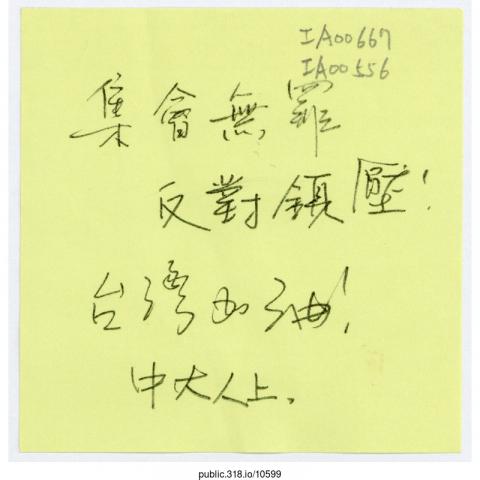 IA00667
IA00556
集會無罪
反對鎮壓!
台灣加油!
中大人上.
public.318.io/10599